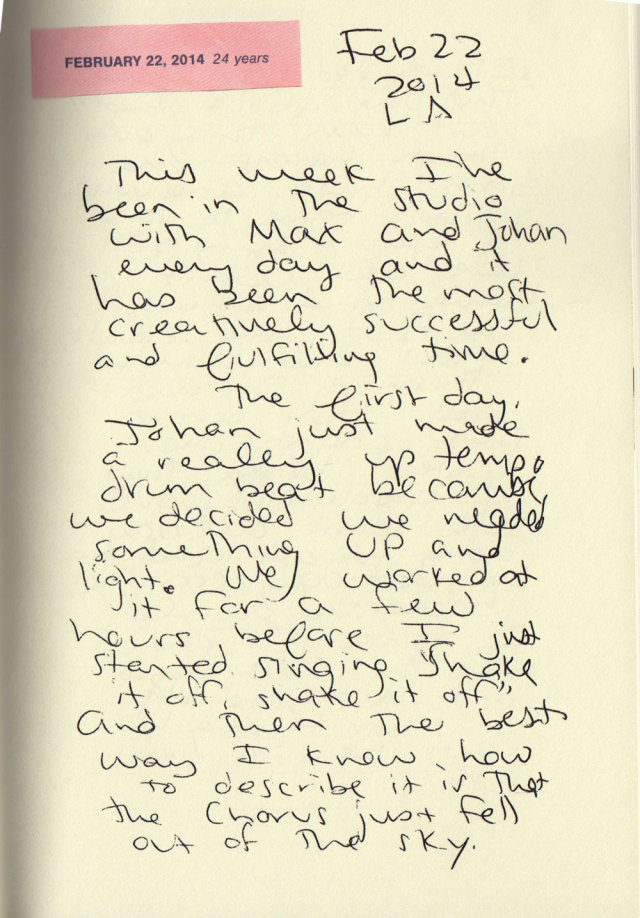 FEBRUARY 22, 2014 24 years
Feb 22
2014
LA
This week I've
been in the studio
with Max and Johan
every day and it
has been the most
creatively successful
and fulfilling time.
The first day,
Johan just made
a really up tempo
drum beat because
we decided we needed
something up and
light. We worked at
it for a few
hours before I just
started singing "Shake
it off, shake it off"
and then the best
way I know how
to describe it is that
the chorus just fell
out of the sky.